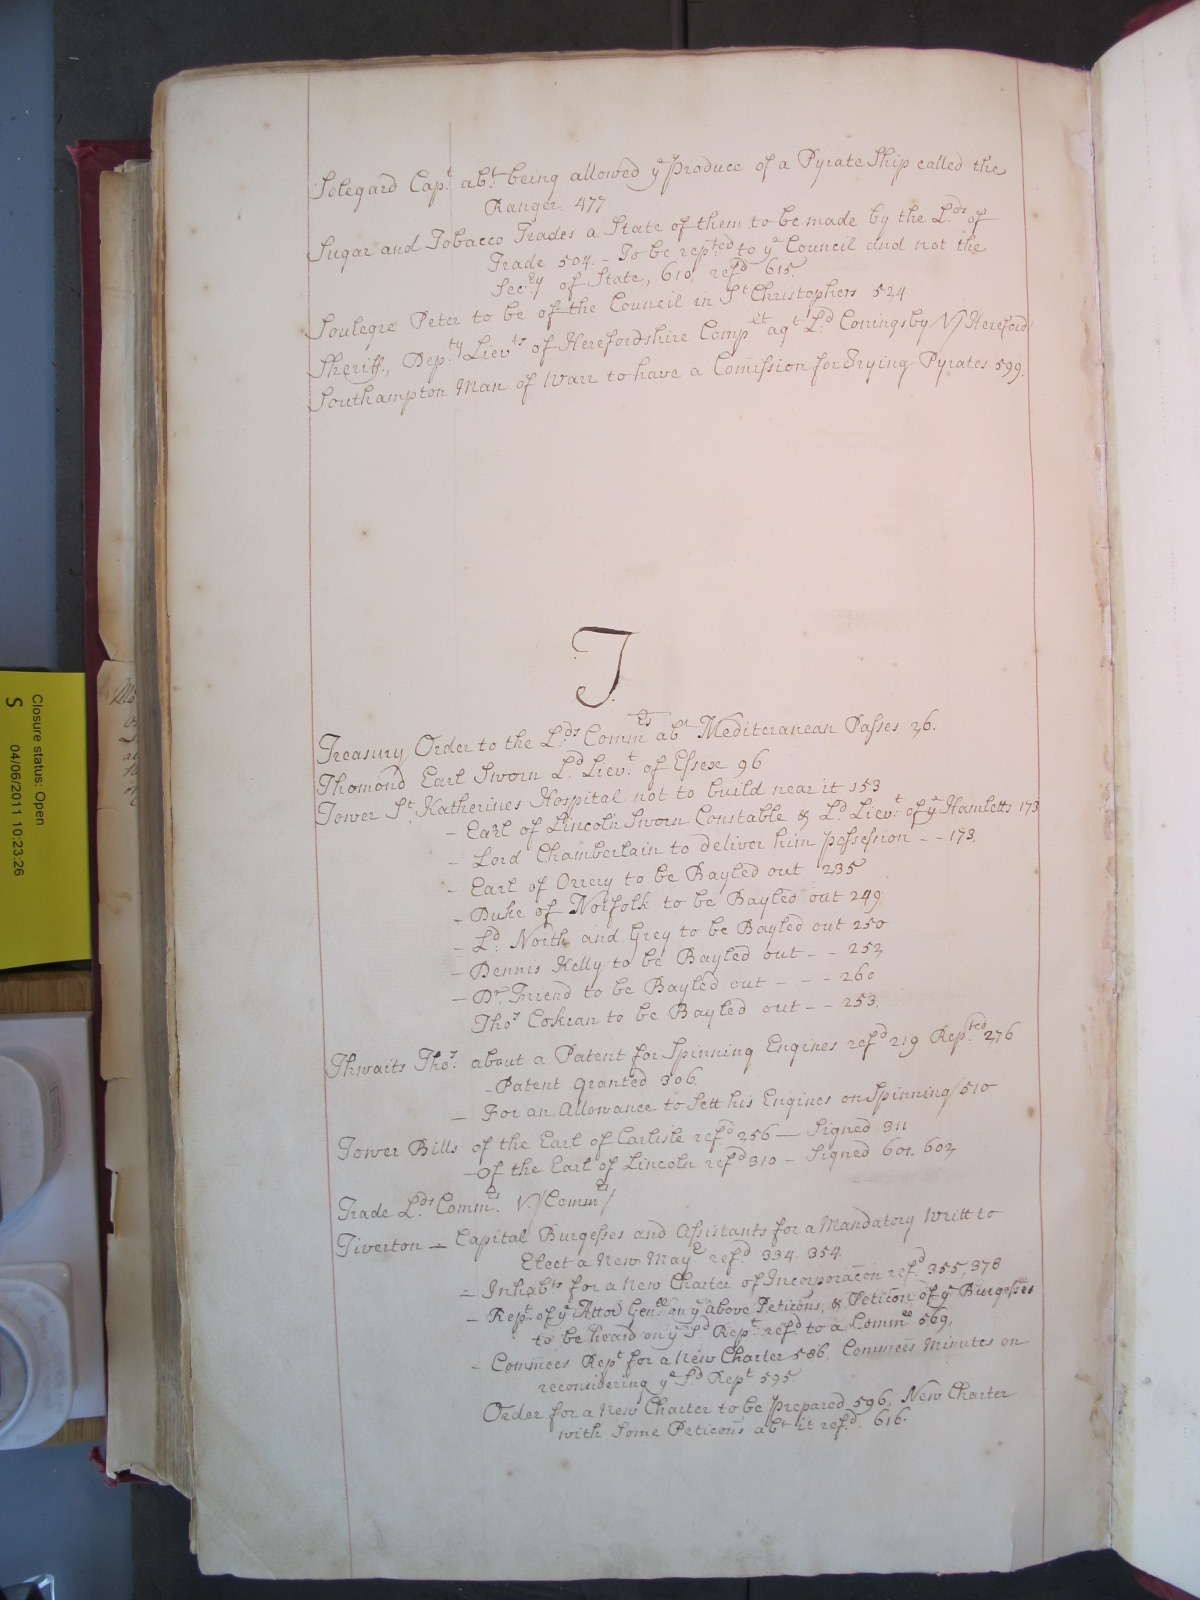 Solegard Capt. abt. being allowed ye produce of a Pyrate Ship called the
Ranger. 477
Sugar and Tobacco Trades a State of them to be made by the Lds. of
Trade 504. - To be repted to ye Council and not the
Secry of State, 610, refd. 615.
Soulegre Peter to be of the Council in St Christophers 524
Sheriff, Depty Lievts of Herefordshire Complt agt Ld Coningsby V/Hereford
Southampton Man of Warr to have a Comission for Trying Pyrates 599.
T
Treasury Order to the Lds. Commrs abt Mediteranean Passes 26.
Thomond Earl Sworn Ld Lievt. of Essex 96
Tower St. Katherines Hospital not to build near it 153
- Earl of Lincoln Sworn Constable & Ld Lievt. of ye Hamletts 173
- Lord Chamberlain to deliver him possession - - 173.
- Earl of Orrery to be Bayled out 235
- Duke of Norfolk to be Bayled out 249
- Ld. North and Grey to be Bayled out 250
- Dennis Kelly to be Bayled out - - 252
- Dr. Friend to be Bayled out - - - 260
Thos Cokran to be Bayled out - - 253.
Thwaits Thos. about a Patent for Spinning Engines refd 219 Repted 276
- Patent granted 306.
- For an Allowance to Sett his Engines on Spinning/510
Tower Bills of the Earl of Carlisle refd 256 - Signed 311
- Of the Earl of Lincoln refd 310 - Signed 601. 602
Trade Lds Commrs. V./Commrs/
Tiverton - Capital Burgesses and Assistants for a Mandatory Writt to
Elect a New Mayr refd. 334. 354.
- Inhabts for a New Charter of Incorporacon refd. 355, 378
- Rept. of ye Attor Genll on ye above Peticons, & Peticon of ye Burgesses
to be heard on ye Sd Rept. refd to a Commee 569.
- Commees Rept for a New Charter 586. Commees Minutes on
reconsidering ye Sd Rept 595.
Order for a New Charter to be prepared 596, New Charter
with Some Peticons abt it refd. 616.
Closure status: Open
S 04/06/2011 10:23:26